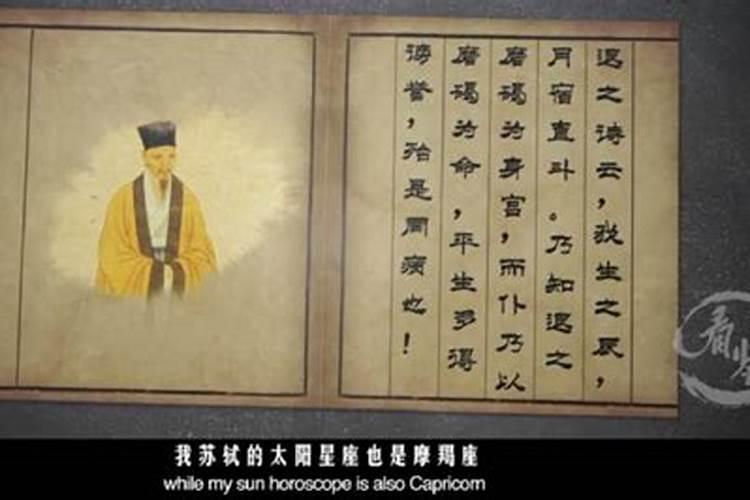 退之诗云，我生之辰，
月宿直斗。乃知退之
磨碣为身宫，而仆乃以
磨碣为命，平生多得
谤誉，殆是同病也！
看
我苏轼的太阳星座也是摩羯座
while my sun horoscope is also Capricorn